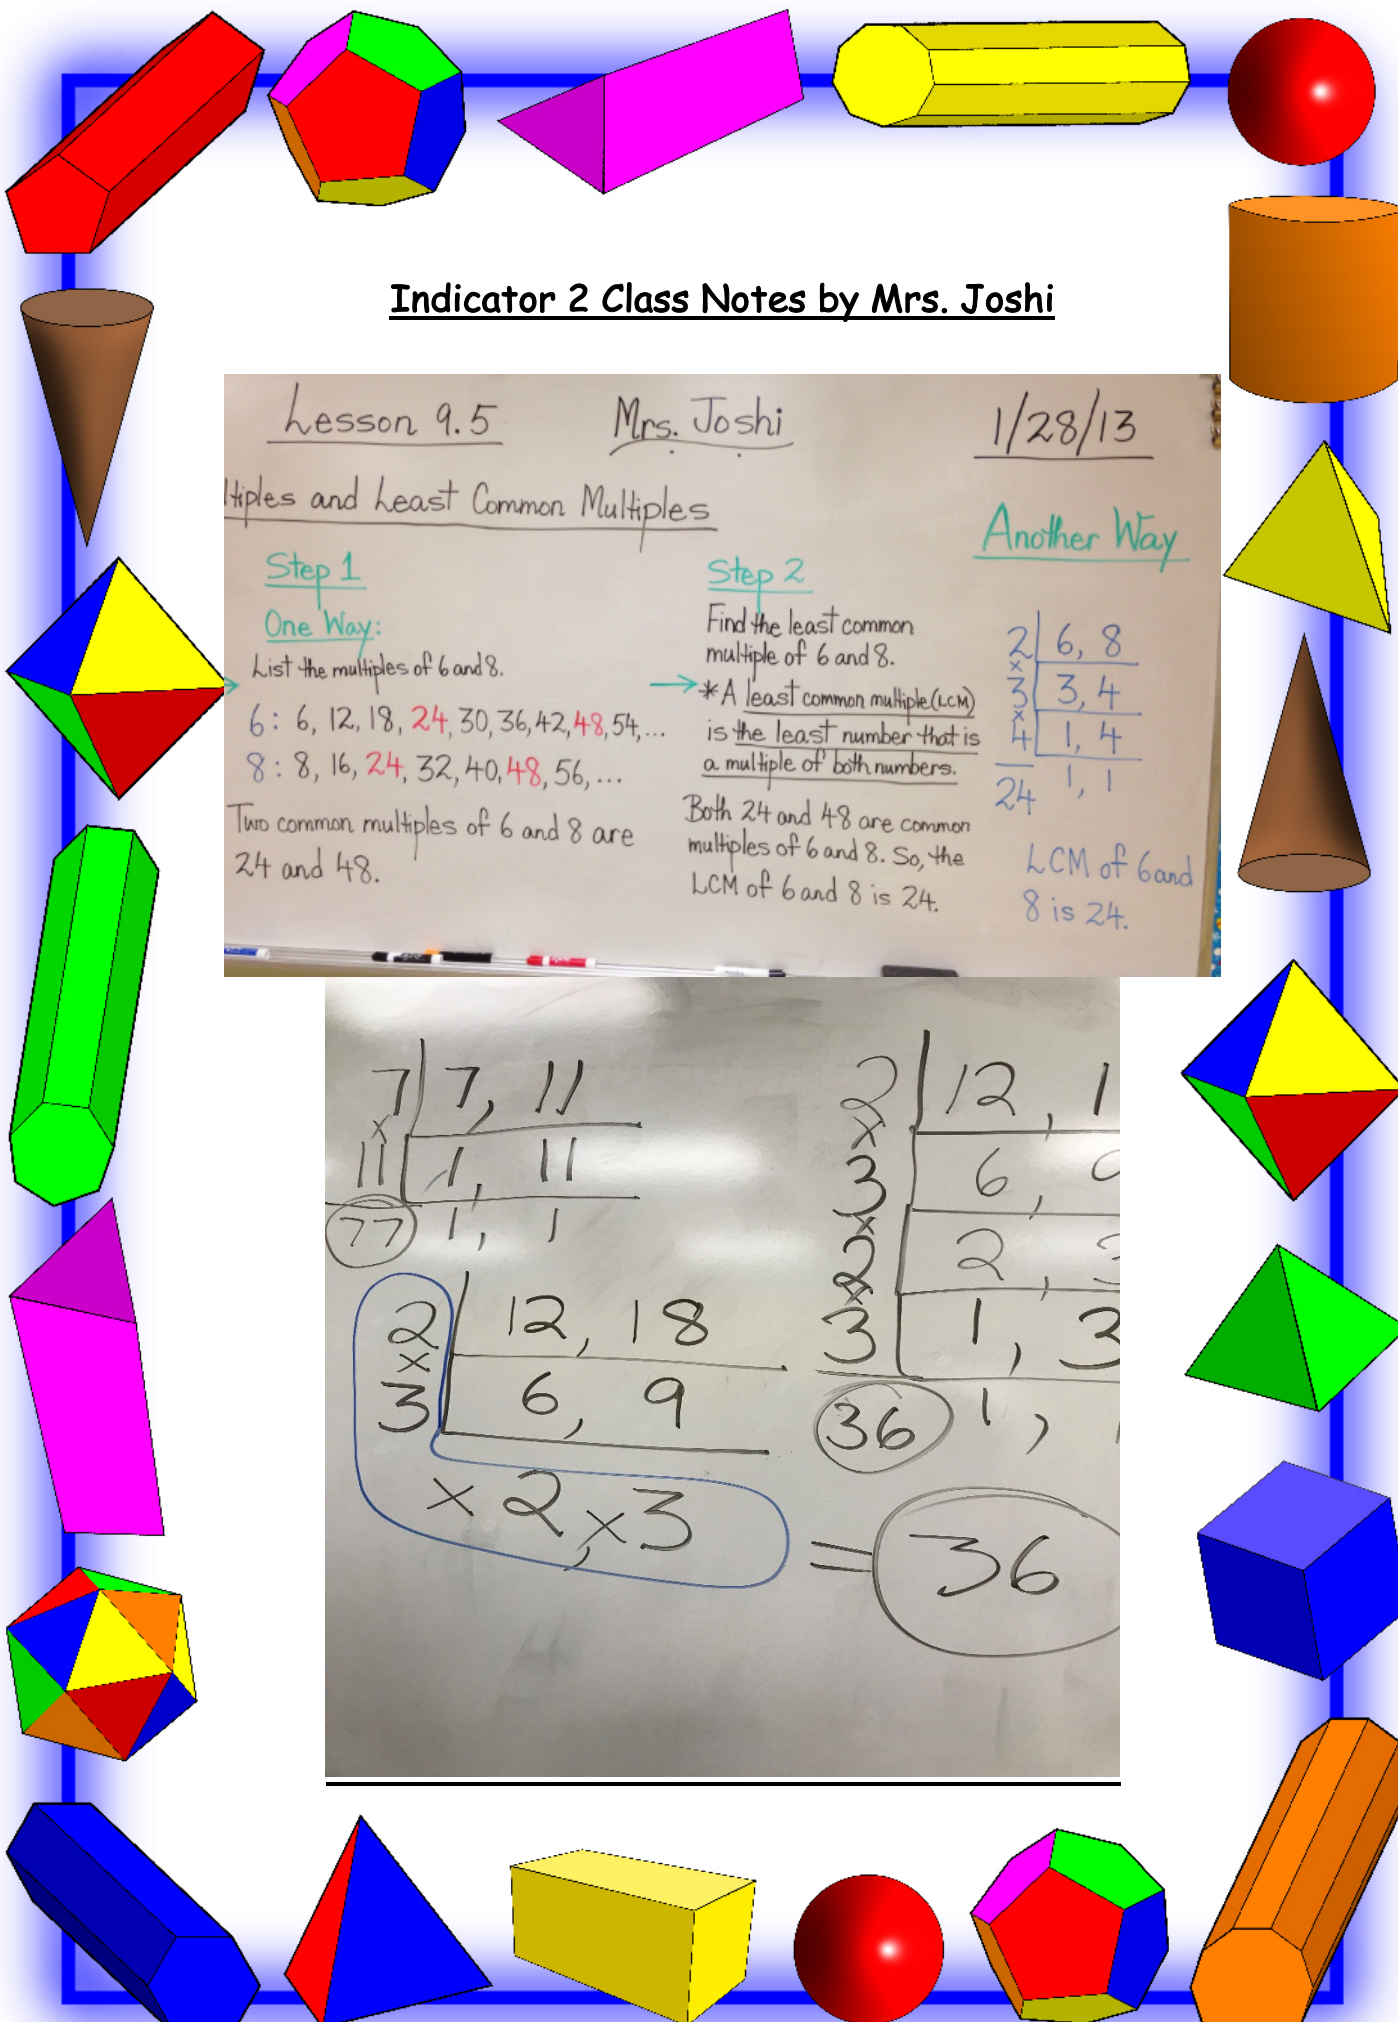 Indicator 2 Class Notes by Mrs. Joshi
Lesson 9.5 Mrs. Joshi 1/28/13
ltiples and Least Common Multiples
Step 1
One Way:
List the multiples of 6 and 8.
6: 6, 12, 18, 24, 30, 36, 42, 48, 54, ...
8: 8, 16, 24, 32, 40, 48, 56, ...
Two common multiples of 6 and 8 are
24 and 48.
Step 2
Find the least common
multiple of 6 and 8.
→ *A least common multiple (LCM)
is the least number that is
a multiple of both numbers.
Both 24 and 48 are common
multiples of 6 and 8. So, the
LCM of 6 and 8 is 24.
Another Way
2 | 6, 8
×
3 | 3, 4
×
4 | 1, 4
24 1, 1
LCM of 6 and
8 is 24.
7 | 7, 11
×
11 | 1, 11
77 1, 1
2 | 12, 18
×
3 | 6, 9
× 2, × 3
= 36
2 | 12, 1
×
3 | 6,
×
2 | 2, 3
×
3 | 1, 3
36 1,